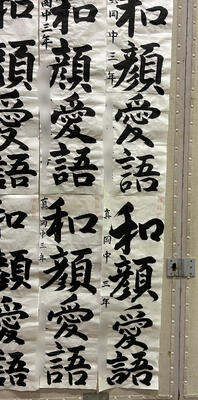 和顔愛語
岡中三年
和顔愛語
岡中三年
顔愛語
和顔愛語
真岡中三年
和顔愛語
真岡中三年
和顔愛語